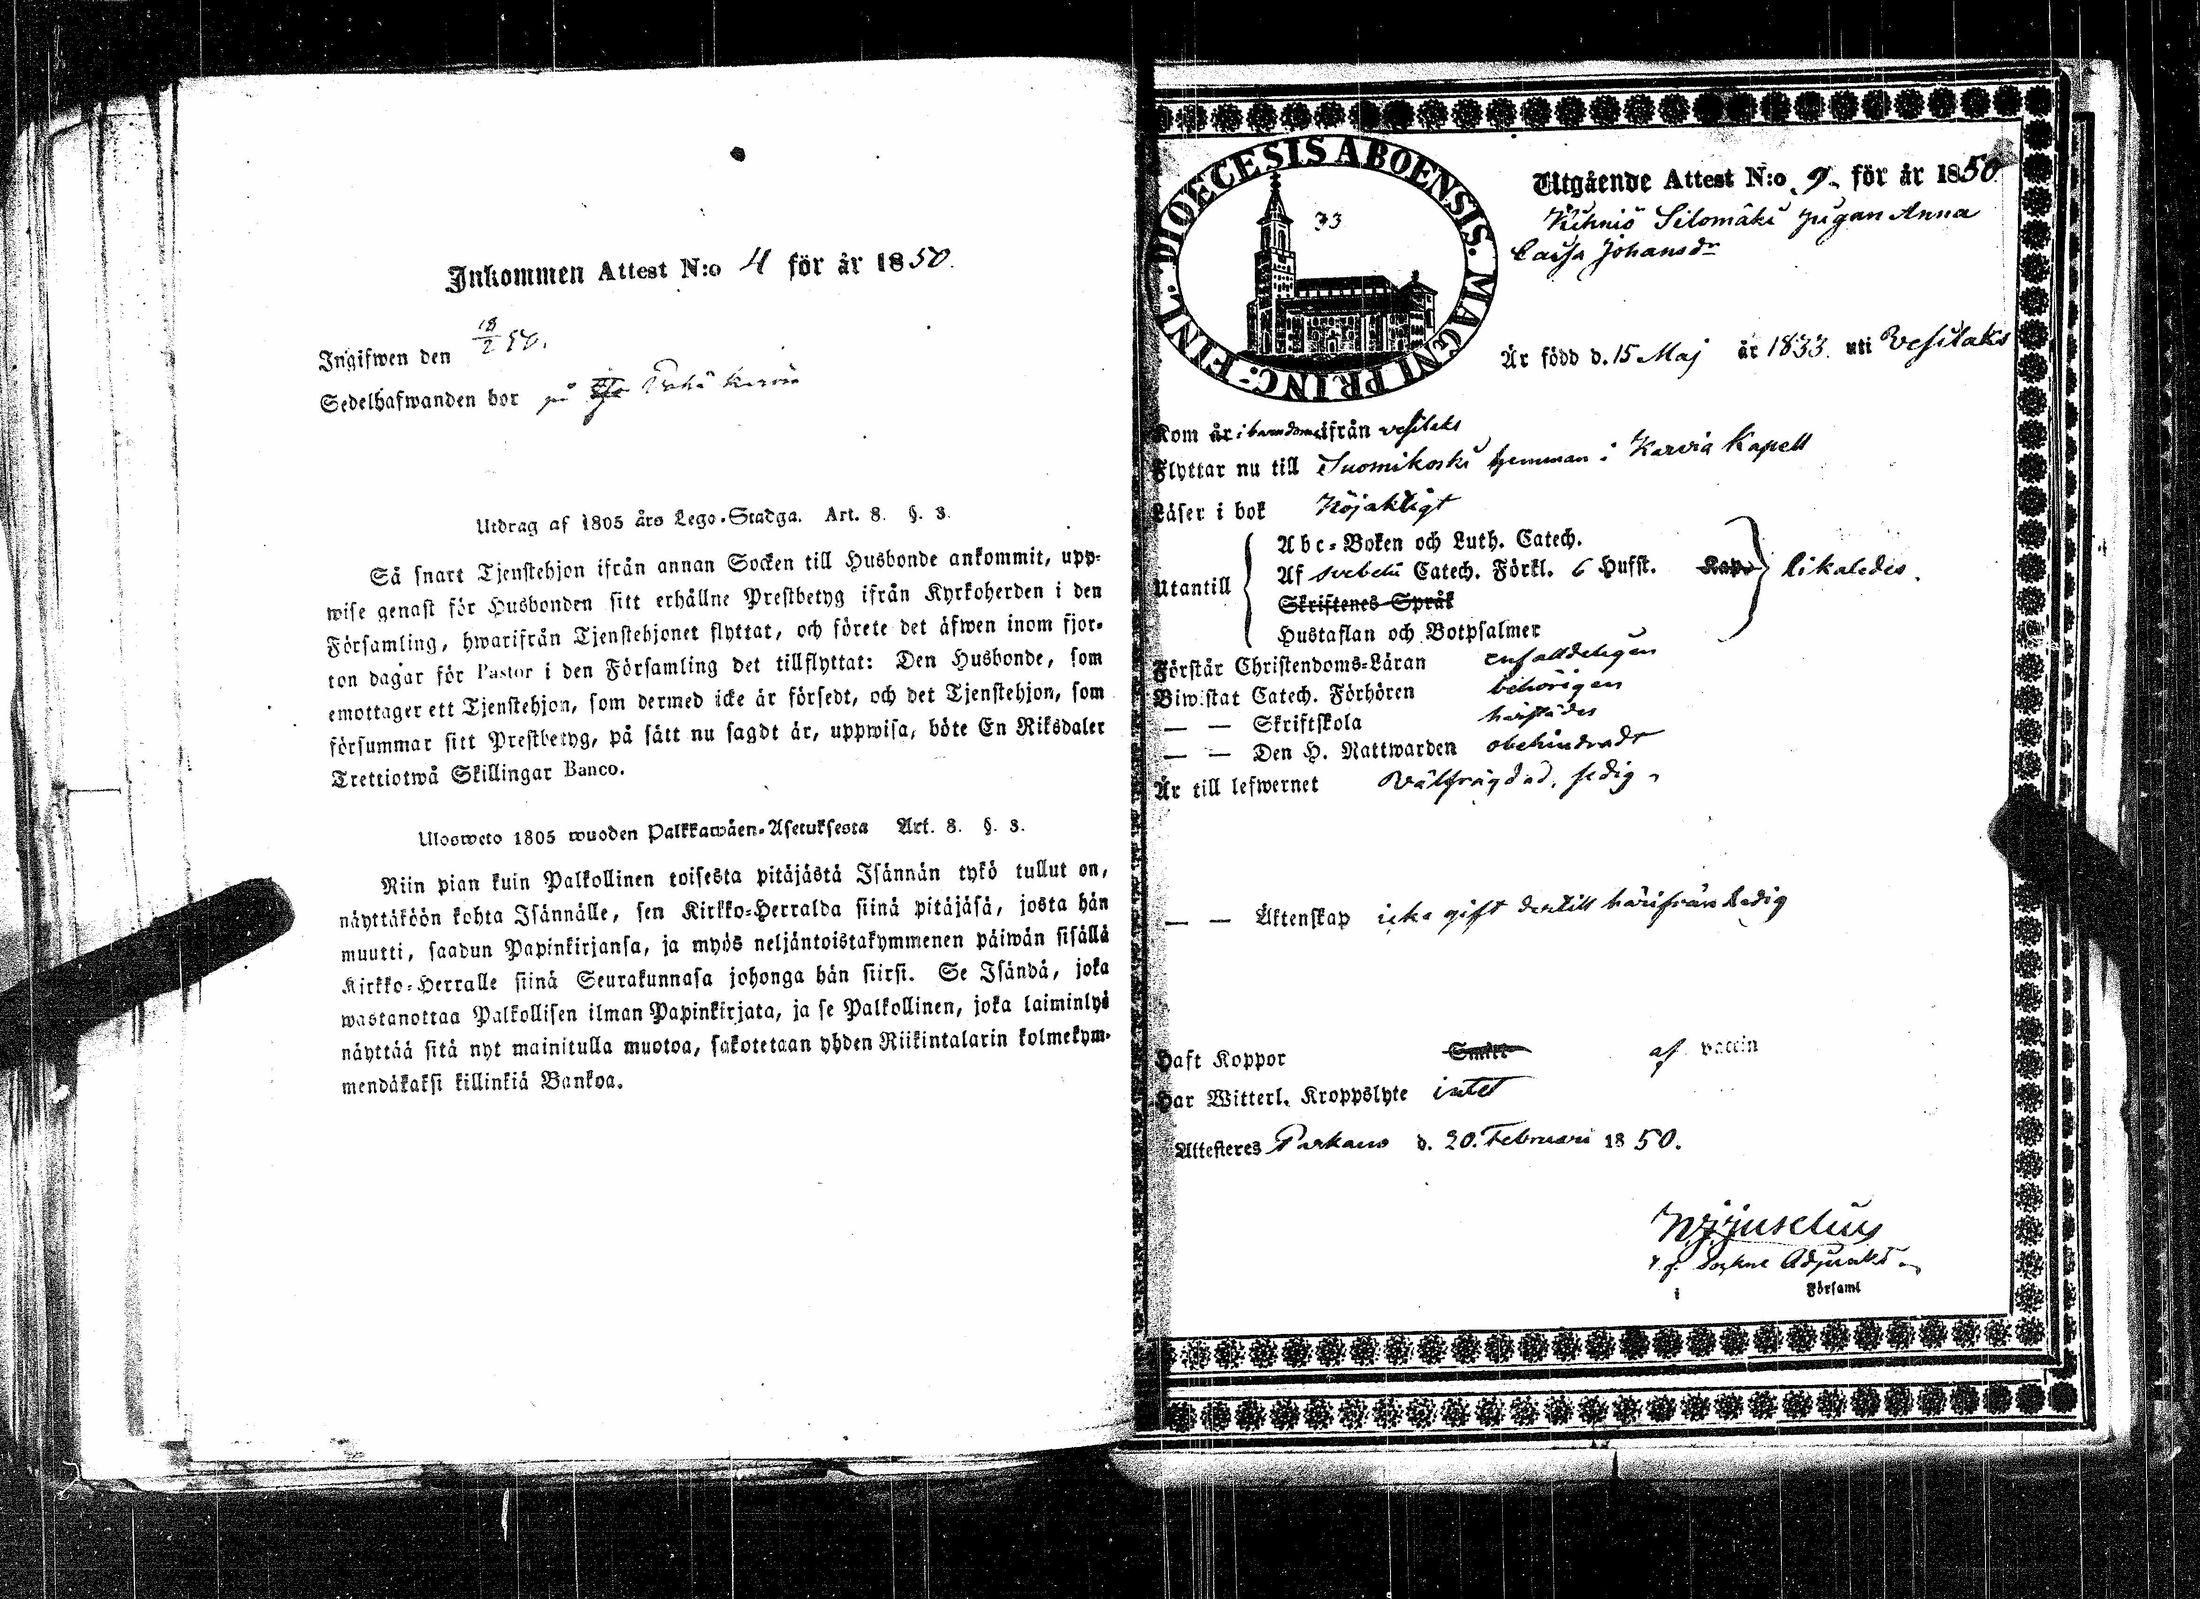 Inkommen Attest N:o 4 för år 1850.
Ingifwen den 18/2 50.
Sedelhafwanden bor på
Utdrag af 1805 års Lego-Stadga. Art. 8. §. 3.
Så snart Tjenstehjon ifrån annan Socken till Husbonde ankommit, upp-
wise genast för Husbonden sitt erhållne Prestbetyg ifrån Kyrkoherden i den
Församling, hwarifrån Tjenstehjonet flyttat, och förete det äfwen inom fjor-
ton dagar för Pastor i den Församling det tillflyttat: Den Husbonde, som
emottager ett Tjenstehjon, som dermed icke är försedt, och det Tjenstehjon, som
försummar sitt Prestbetyg, på sätt nu sagdt är, uppwisa, böte En Riksdaler
Trettiotwå Skillingar Banco.
Ulosweto 1805 wuoden Palkkawäen-Asetuksesta Art. 8. §. 3.
Niin pian kuin Palkollinen toisesta pitäjästä Isännän tykö tullut on,
näyttäköön kohta Isännälle, sen Kirkko-Herralda siinä pitäjäsä, josta hän
muutti, saadun Papinkirjansa, ja myös neljäntoistakymmenen päiwän sisällä
Kirkko-Herralle siinä Seurakunnasa johonga hän siirsi. Se Isändä, joka
wastanottaa Palkollisen ilman Papinkirjata, ja se Palkollinen, joka laiminlyö
näyttää sitä nyt mainitulla muotoa, sakotetaan yhden Riikintalarin kolmekym-
mendäkaksi killinkiä Bankoa.
DIOECESIS ABOENSIS. MAGNI PRINC: FINL.
33
Utgående Attest N:o 9 för år 1850
Kihniö Silomäki pigan Anna
Caisa Johansdr
Är född d. 15 Maj år 1833. uti Vesilaks
Kom år i barndomen ifrån Vesilaks
Flyttar nu till Suomikoski hemman i Karvia Kapell
Läser i bok Nöjaktigt
Utantill
Abc-Boken och Luth. Catech.
Af Svebelii Catech. Förkl. 6 Hufst. Kap. likaledes.
Skriftenes Språk
Hustaflan och Botpsalmer
Förstår Christendoms-Läran enfalldeligen
Biwistat Catech. Förhören behörigen
— — Skriftskola härstädes
— — Den H. Nattwarden obehindradt
Är till lefwernet Välfrägdad, sedig
— — Äktenskap icke gift dertill härifrån Ledig
Haft Koppor af vaccin
Har Witterl. Kroppslyte intet
Attesteres Parkano d. 20. Februari 1850.
Adjunkt
i Församl